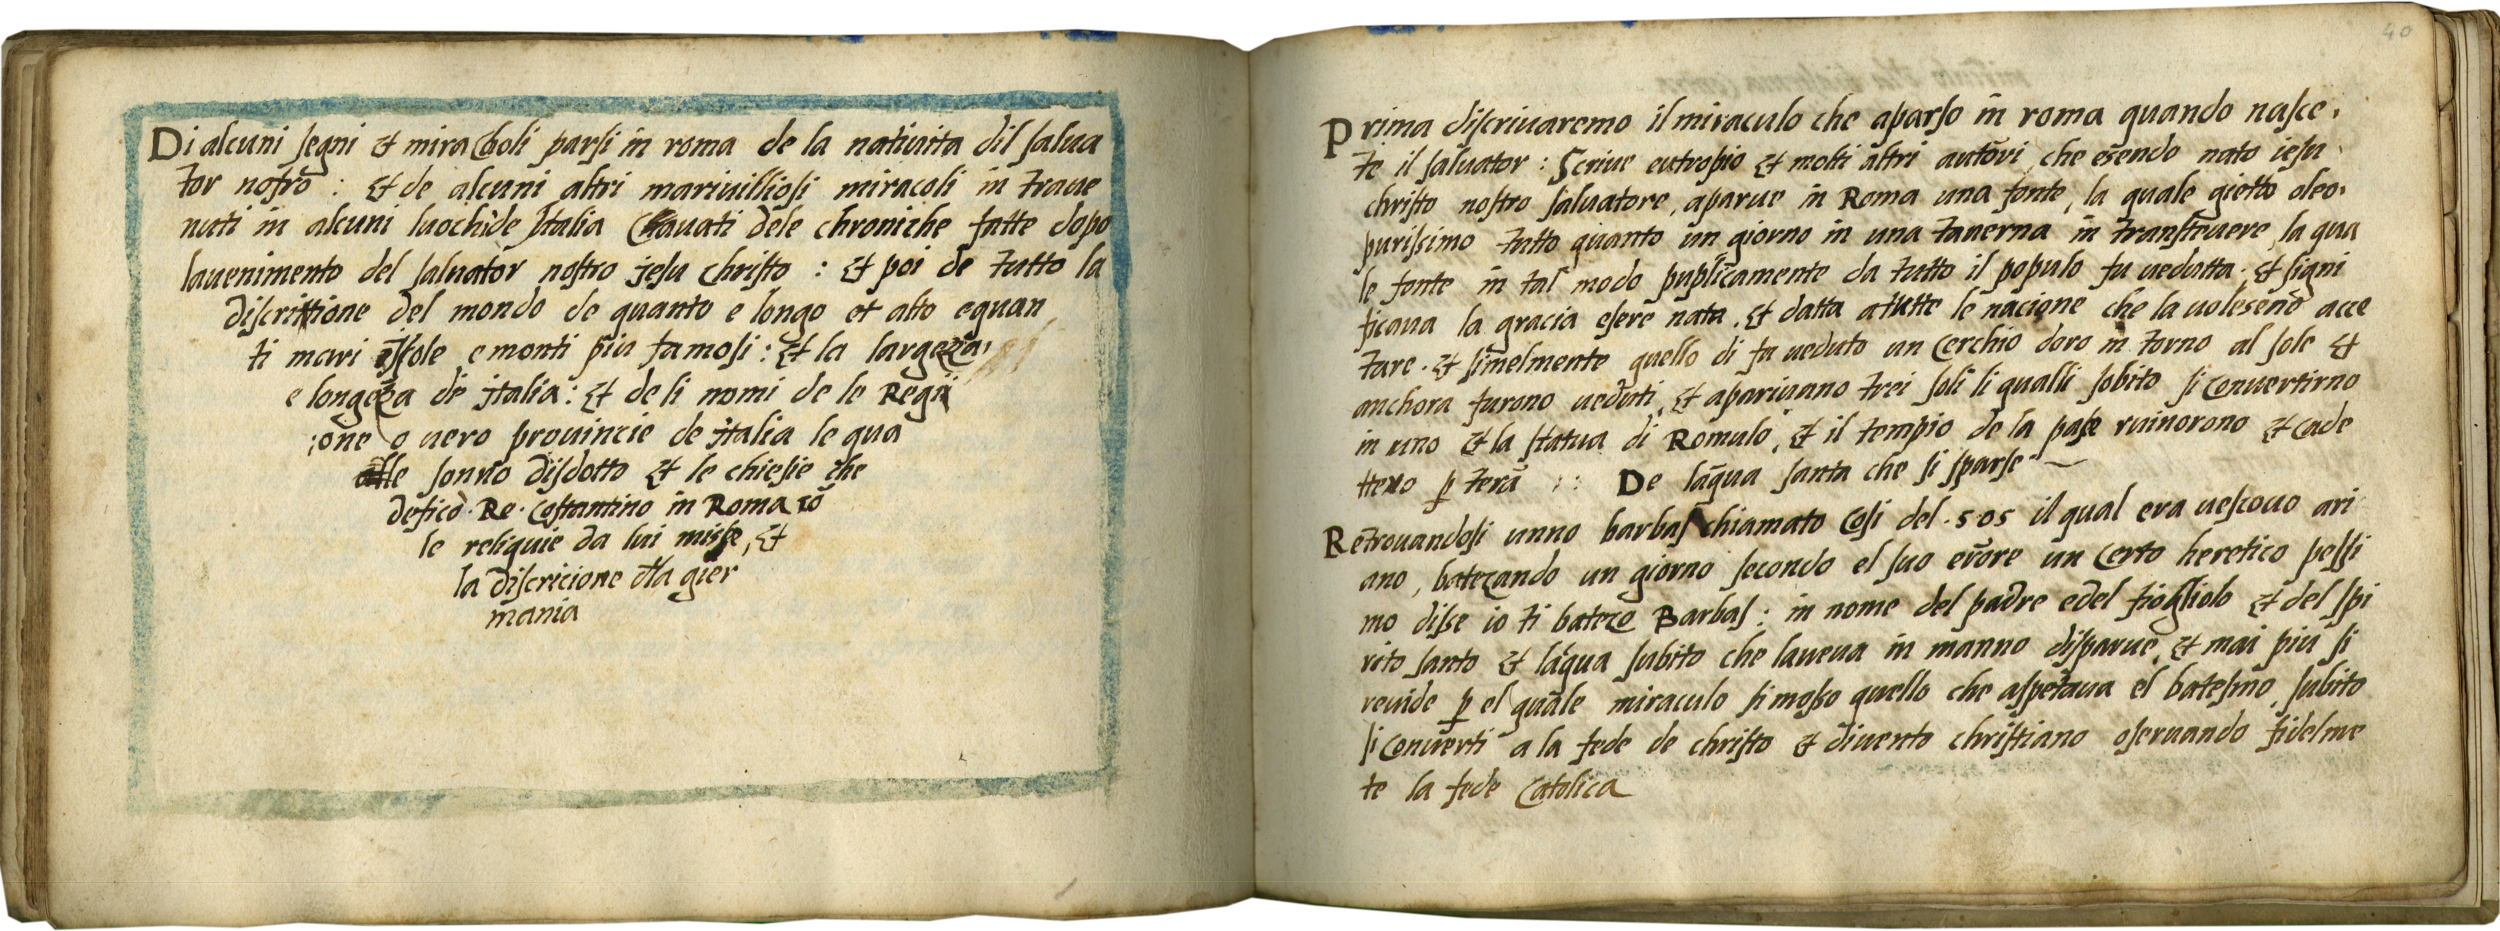 Di alcuni segni et miracholi parsi in roma de la natiuita dil salua
tor nostro : et de alcuni altri mariuilliosi miracoli in traue
nuti in alcuni luochi de Italia Cauati dele chroniche fatte dopo
lauenimento del saluator nostro jesu christo : et poi de tutto la
discrittione del mondo de quanto e longo et alto equan
ti mari Isole e monti piu famosi : et la largeza,
e longeza de italia : et de li nomi de le Regii
;one o uero prouincie de italia le qua
le sonno disdotto et le chiesie che
defico . Re . Costantino in Roma cõ
le reliquie da lui misse, et
la discricione dla gier
mania
40
Prima discriuaremo il miraculo che aparso in roma quando nasce,
te il saluator : Scriue eutropio et molti altri autori che esendo nato iesu
christo nostro saluatore, aparue in Roma una fonte, la quale gietto oleo,
purissimo tutto quanto un giorno in una tauerna in transteuere, la qua
le fonte in tal modo puplicamente da tutto il populo fu uedutta . et signi
ficaua la gracia esere nata, et datta atutte le nacione che la uolesenõ acce
tare . et simelmente quello di fu ueduto un Cerchio doro in torno al sole et
anchora furono ueduti, et apariuano trei soli li qualli sobito si Conuertirno
in uno et la statua di Romulo, et il tempio de la pase ruinorono et Cade
ttero p terã : : De laqua santa che si sparse
Retrouandosi unno barbas chiamato Cosi del . 505 il qual era uescouo ari
ano, batezando un giorno secondo el suo erore un Certo heretico pessi
mo disse io ti batezo Barbas : in nome del padre edel fiogliolo et del spi
rito santo et laqua subito che laueua in manno disparue, et mai piu si
reuide p el quale miraculo si mosso quello che aspetaua el batesmo, subito
si Conuerti a la fede de christo et diuento christiano oseruando fidelme
te la fede Catolica